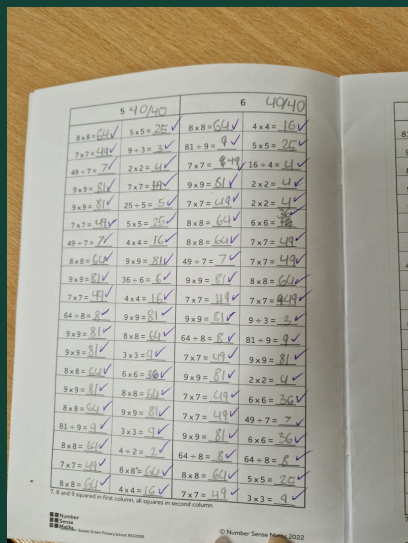 5 40/40 6 40/40
8 x 8 = 64 ✓ 5 x 5 = 25 ✓ 8 x 8 = 64 ✓ 4 x 4 = 16 ✓
7 x 7 = 49 ✓ 9 ÷ 3 = 3 ✓ 81 ÷ 9 = 9 ✓ 5 x 5 = 25 ✓
49 ÷ 7 = 7 ✓ 2 x 2 = 4 ✓ 7 x 7 = 49 ✓ 16 ÷ 4 = 4 ✓
9 x 9 = 81 ✓ 7 x 7 = 49 ✓ 9 x 9 = 81 ✓ 2 x 2 = 4 ✓
9 x 9 = 81 ✓ 25 ÷ 5 = 5 ✓ 7 x 7 = 49 ✓ 2 x 2 = 4 ✓
7 x 7 = 49 ✓ 5 x 5 = 25 ✓ 8 x 8 = 64 ✓ 6 x 6 = 36 ✓
49 ÷ 7 = 7 ✓ 4 x 4 = 16 ✓ 8 x 8 = 64 ✓ 7 x 7 = 49 ✓
8 x 8 = 64 ✓ 9 x 9 = 81 ✓ 49 ÷ 7 = 7 ✓ 7 x 7 = 49 ✓
9 x 9 = 81 ✓ 36 ÷ 6 = 6 ✓ 9 x 9 = 81 ✓ 8 x 8 = 64 ✓
7 x 7 = 49 ✓ 4 x 4 = 16 ✓ 7 x 7 = 49 ✓ 7 x 7 = 49 ✓
64 ÷ 8 = 8 ✓ 9 x 9 = 81 ✓ 9 x 9 = 81 ✓ 9 ÷ 3 = 3 ✓
9 x 9 = 81 ✓ 8 x 8 = 64 ✓ 64 ÷ 8 = 8 ✓ 81 ÷ 9 = 9 ✓
9 x 9 = 81 ✓ 3 x 3 = 9 ✓ 7 x 7 = 49 ✓ 9 x 9 = 81 ✓
8 x 8 = 64 ✓ 6 x 6 = 36 ✓ 9 x 9 = 81 ✓ 2 x 2 = 4 ✓
9 x 9 = 81 ✓ 8 x 8 = 64 ✓ 7 x 7 = 49 ✓ 6 x 6 = 36 ✓
8 x 8 = 64 ✓ 9 x 9 = 81 ✓ 7 x 7 = 49 ✓ 49 ÷ 7 = 7 ✓
81 ÷ 9 = 9 ✓ 3 x 3 = 9 ✓ 9 x 9 = 81 ✓ 6 x 6 = 36 ✓
8 x 8 = 64 ✓ 4 ÷ 2 = 2 ✓ 64 ÷ 8 = 8 ✓ 64 ÷ 8 = 8 ✓
7 x 7 = 49 ✓ 8 x 8 = 64 ✓ 8 x 8 = 64 ✓ 5 x 5 = 25 ✓
8 x 8 = 64 ✓ 4 x 4 = 16 ✓ 7 x 7 = 49 ✓ 3 x 3 = 9 ✓
7, 8 and 9 squared in first column, all squares in second column
Number
Sense
Maths
© Number Sense Maths 2022